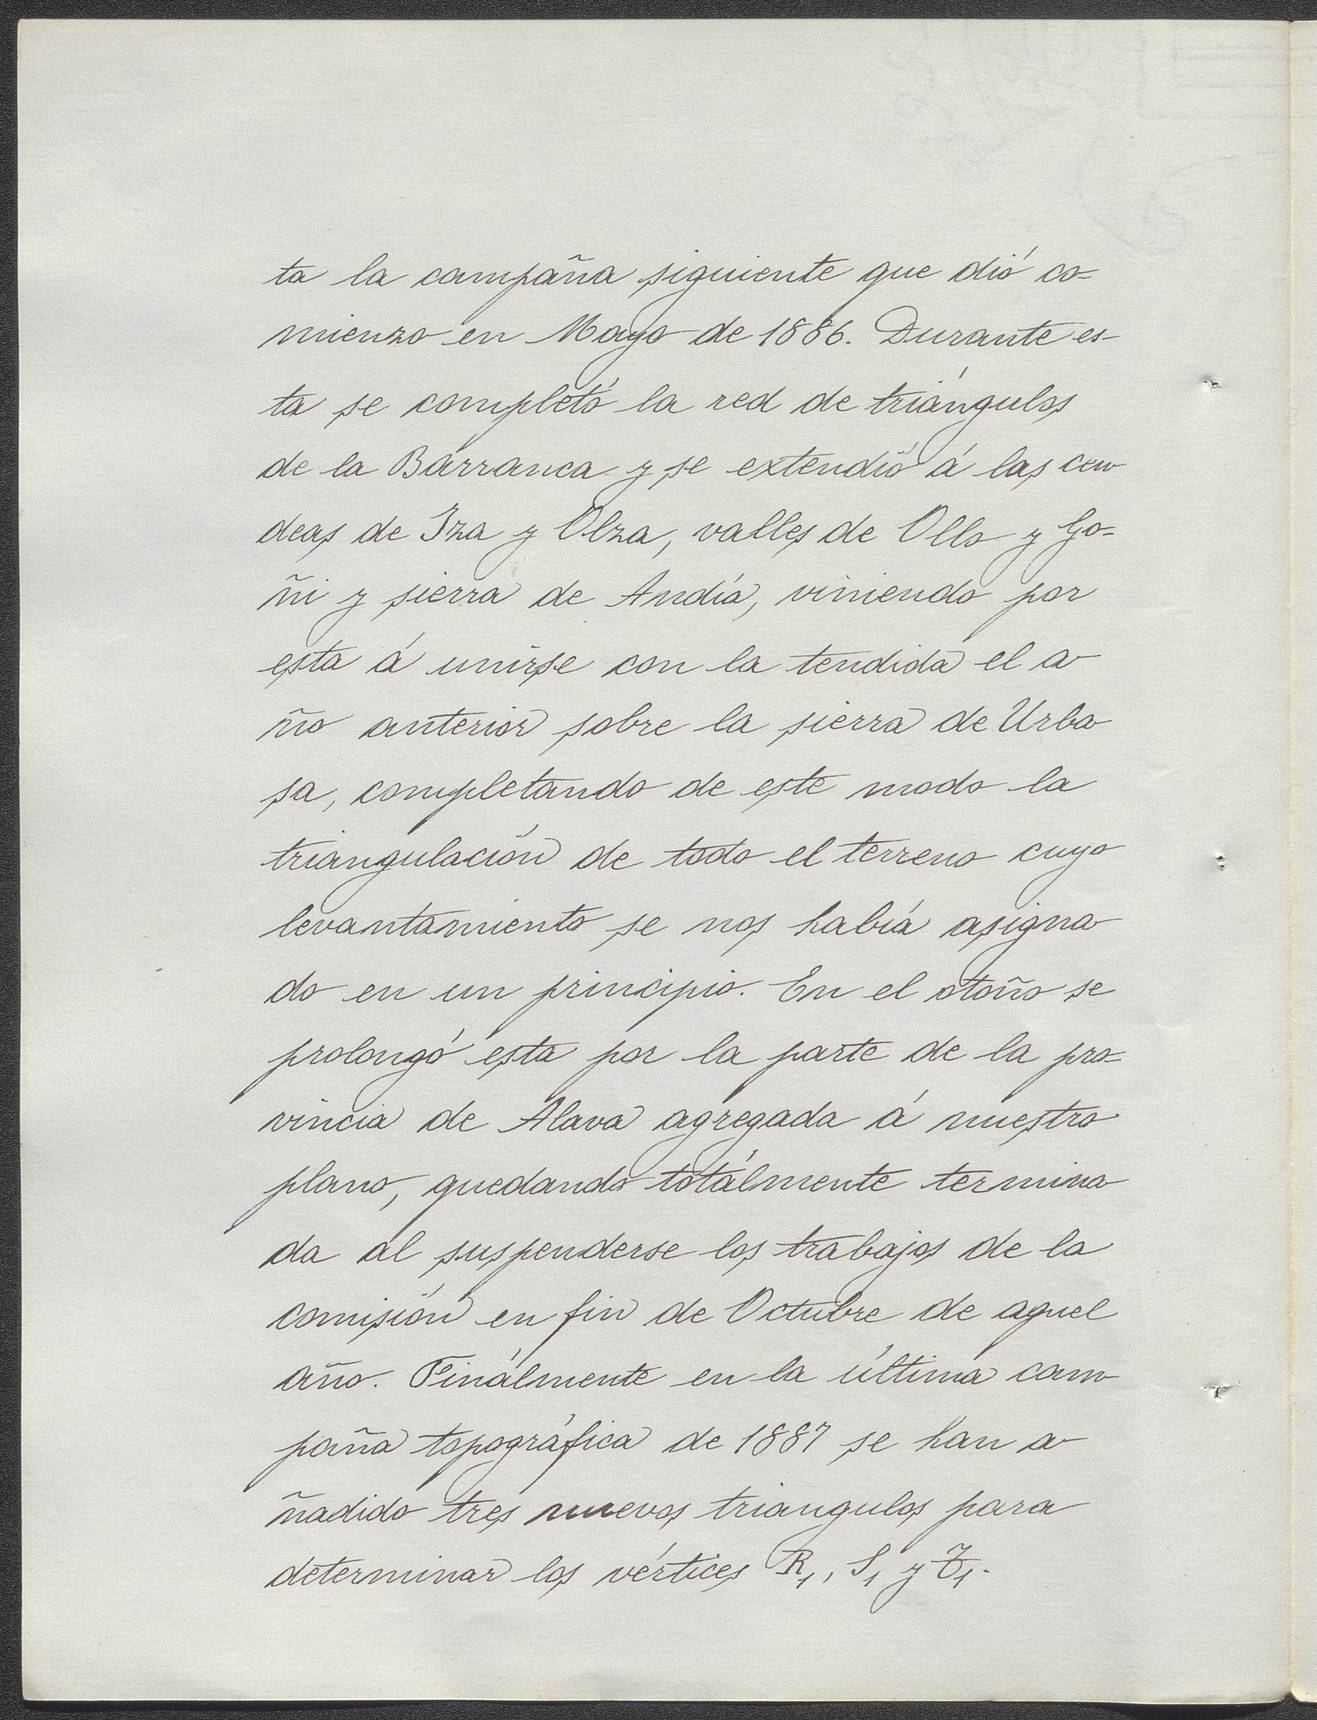 ta la campaña siguiente que dió co=
mienzo en Mayo de 1886. Durante es-
ta se completó la red de triángulos
de la Barranca y se extendió á las cen
deas de Iza y Olza, valles de Ollo y Go=
ñi y sierra de Andía, viniendo por
esta á unirse con la tendida el a
ño anterior sobre la sierra de Urba
sa, completando de este modo la
triangulación de todo el terreno cuyo
levantamiento se nos había asigna
do en un principio. En el otoño se
prolongó esta por la parte de la pro=
vincia de Alava agregada á nuestro
plano, quedando totalmente termina
da al suspenderse los trabajos de la
comisión en fin de Octubre de aquel
año. Finalmente en la última cam
paña topográfica de 1887 se han a
ñadido tres nuevos triangulos para
determinar los vértices R₁, S₁ y T₁.